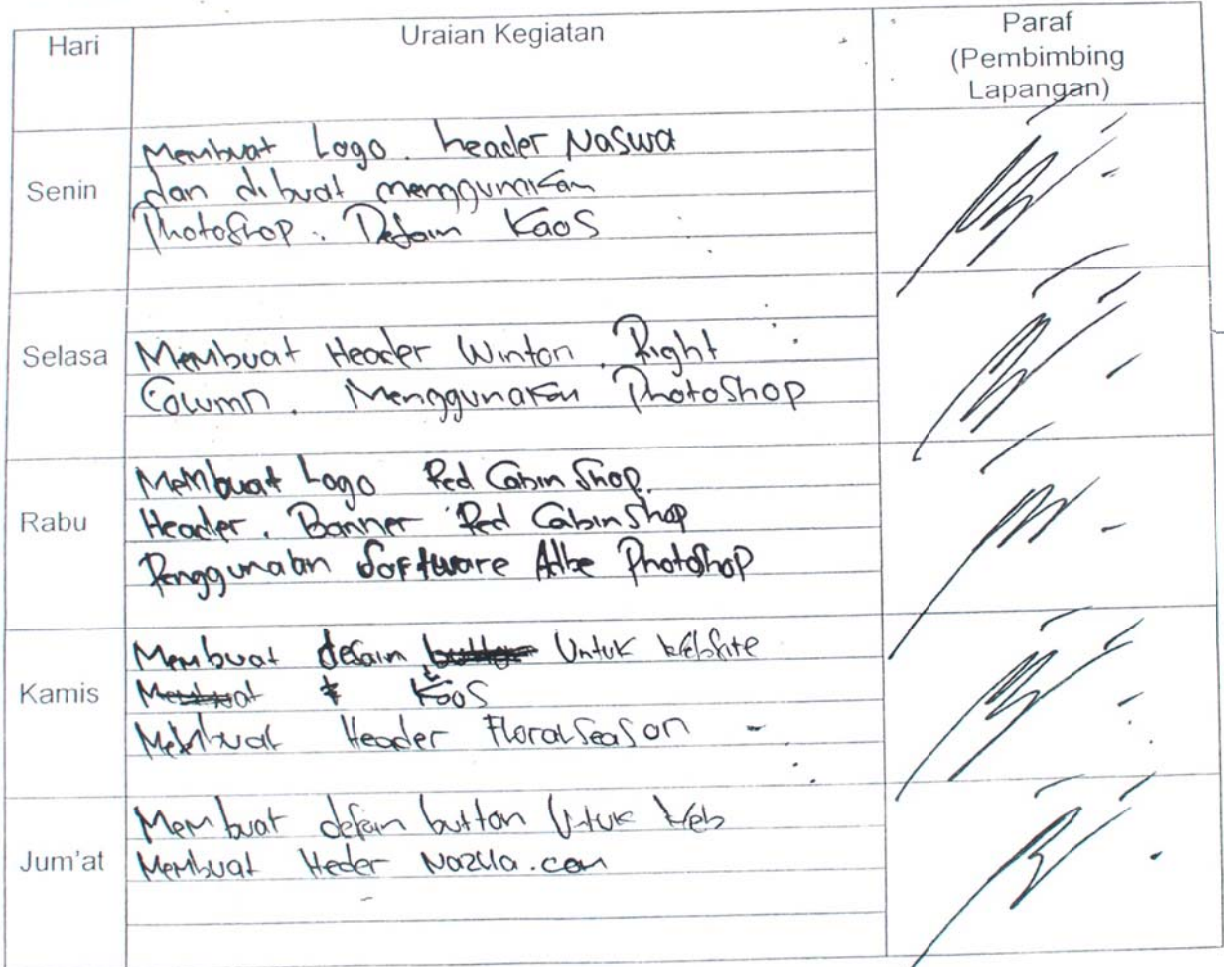 Hari Uraian Kegiatan Paraf
(Pembimbing
Lapangan)
Senin
Membuat Logo. header Naswa
dan dibuat menggunakan
Photoshop. Desain Kaos
Selasa
Membuat Header Winton. Right
Column. Menggunakan Photoshop
Rabu
Membuat Logo Red Cabin Shop.
Header. Banner Red Cabin Shop
Penggunaan Software Adbe Photoshop
Kamis
Membuat desain Untuk Website
Kaos
Membuat Header Floral Season
Jum'at
Membuat desain button Untuk Web
Membuat Heder Nazlla.com